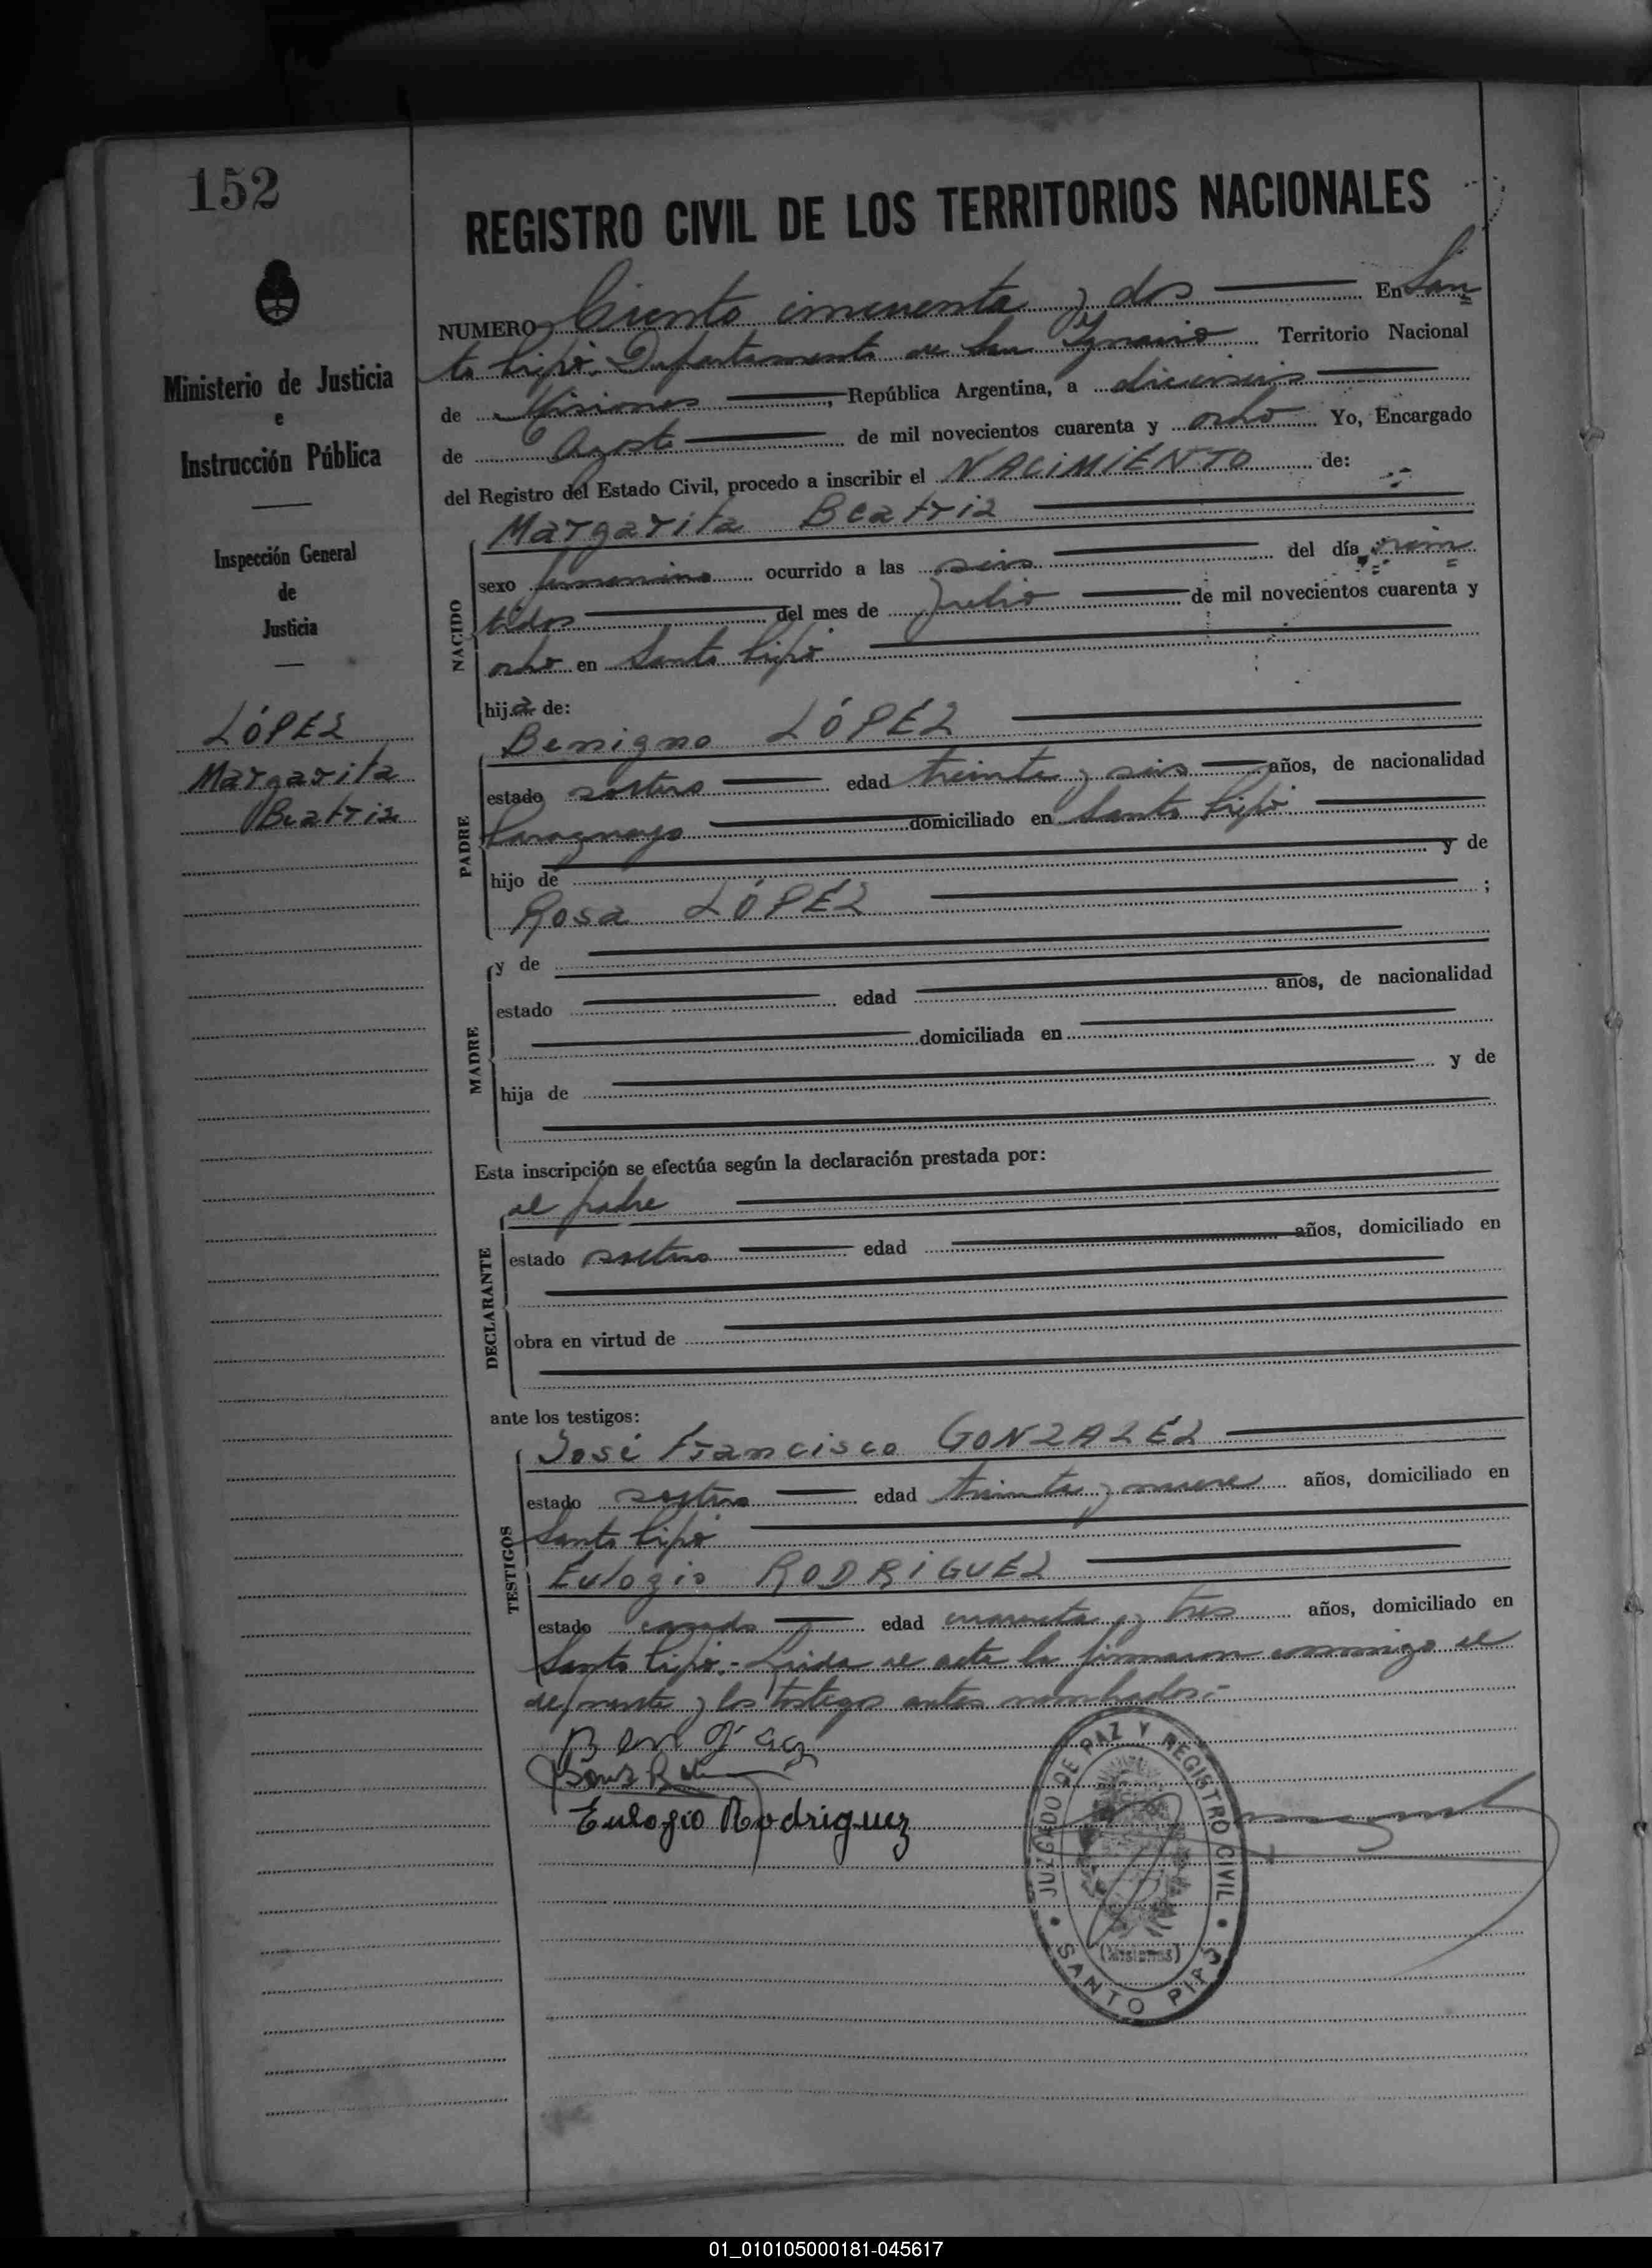 152
REGISTRO CIVIL DE LOS TERRITORIOS NACIONALES
NUMERO Ciento cincuenta y dos En San
to Pipó. Departamento de San Ignacio Territorio Nacional
de Misiones, República Argentina, a dieciseis
de Agosto de mil novecientos cuarenta y ocho Yo, Encargado
del Registro del Estado Civil, procedo a inscribir el NACIMIENTO de:
Ministerio de Justicia
e
Instrucción Pública
Inspección General
de
Justicia
LÓPEZ
Margarita
Beatriz
NACIDO
Margarita Beatriz
sexo femenino ocurrido a las seis del día vein
tidos del mes de Julio de mil novecientos cuarenta y
ocho en Santo Pipó
hija de:
PADRE
Benigno LÓPEZ
estado soltero edad treinta y seis años, de nacionalidad
Paraguayo domiciliado en Santo Pipó
hijo de y de
Rosa LÓPEZ ;
MADRE
y de
estado edad años, de nacionalidad
domiciliada en
hija de y de
Esta inscripción se efectúa según la declaración prestada por:
DECLARANTE
el padre
estado soltero edad años, domiciliado en
obra en virtud de
ante los testigos:
TESTIGOS
José Francisco GONZALEZ
estado soltero edad treinta y nueve años, domiciliado en
Santo Pipó
Eulogio RODRIGUEZ
estado casado edad cuarenta y tres años, domiciliado en
Santo Pipó.- Leida el acta la firmaron conmigo el
y los testigos antes nombrados.-
Eulogio Rodriguez
JUZGADO DE PAZ Y REGISTRO CIVIL
(Misiones)
SANTO PIPÓ
01_010105000181-045617